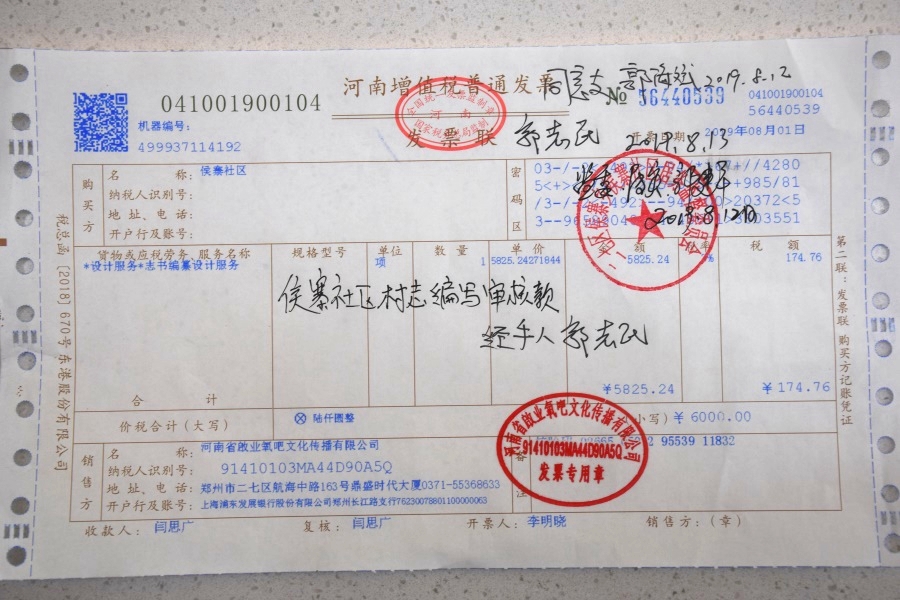 河南增值税普通发票
041001900104
机器编号:
499937114192
全国统一发票监制章
河南
国家税务总局监制
发票联
№ 56440539
041001900104
56440539
2019.8.12
郭志民 2019.8.13
开票日期: 2019年08月01日
购买方
名 称: 侯寨社区
纳税人识别号:
地 址、电 话:
开户行及账号:
密码区
2019.8.12日
货物或应税劳务、服务名称 规格型号 单位 数 量 单 价 金 额 税率 税 额
*设计服务*志书编纂设计服务 项 1 5825.24271844 5825.24 174.76
侯寨社区村志编写审核款
经手人 郭志民
合 计 ¥5825.24 ¥174.76
价税合计(大写) ⊗ 陆仟圆整 (小写) ¥ 6000.00
销售方
名 称: 河南省啟业氧吧文化传播有限公司
纳税人识别号: 91410103MA44D90A5Q
地 址、电 话: 郑州市二七区航海中路163号鼎盛时代大厦0371-55368633
开户行及账号: 上海浦东发展银行股份有限公司郑州长江路支行76230078801100000063
备注
95539 11832
河南省啟业氧吧文化传播有限公司
91410103MA44D90A5Q
发票专用章
收款人: 闫思广 复核: 闫思广 开票人: 李明晓 销售方:(章)
税总函[2018]670号东港股份有限公司
第二联:发票联 购买方记账凭证